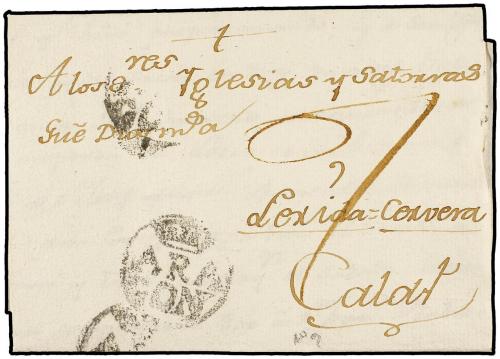 A los S.res Yglesias y Satorras
Gue Dios m.s a
7
Lerida = Cervera
Calaf
ARA
GON